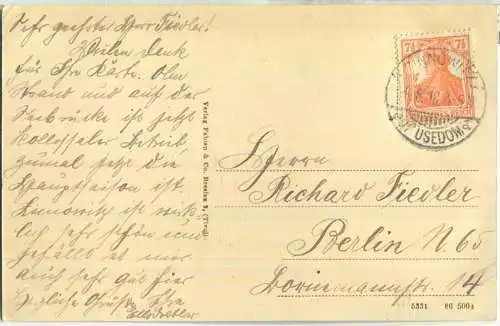 Sehr geehrter Herr Fiedler!
Vielen Dank
für Ihre Karte. Am
Strand und auf der
Seebrücke ist jetzt
kollossaler Betrieb
zumal jetzt die
Hauptsaison ist.
Zinnowitz ist wirk-
lich sehr schön und
gefällt es mir
auch sehr gut hier
Herzliche Grüße Ihre
Verlag Fabian & Co. Breslau 2,
7½ 7½
ZINNOWITZ
USEDOM
Herrn
Richard Fiedler
Berlin N. 65
14
5331 86 500